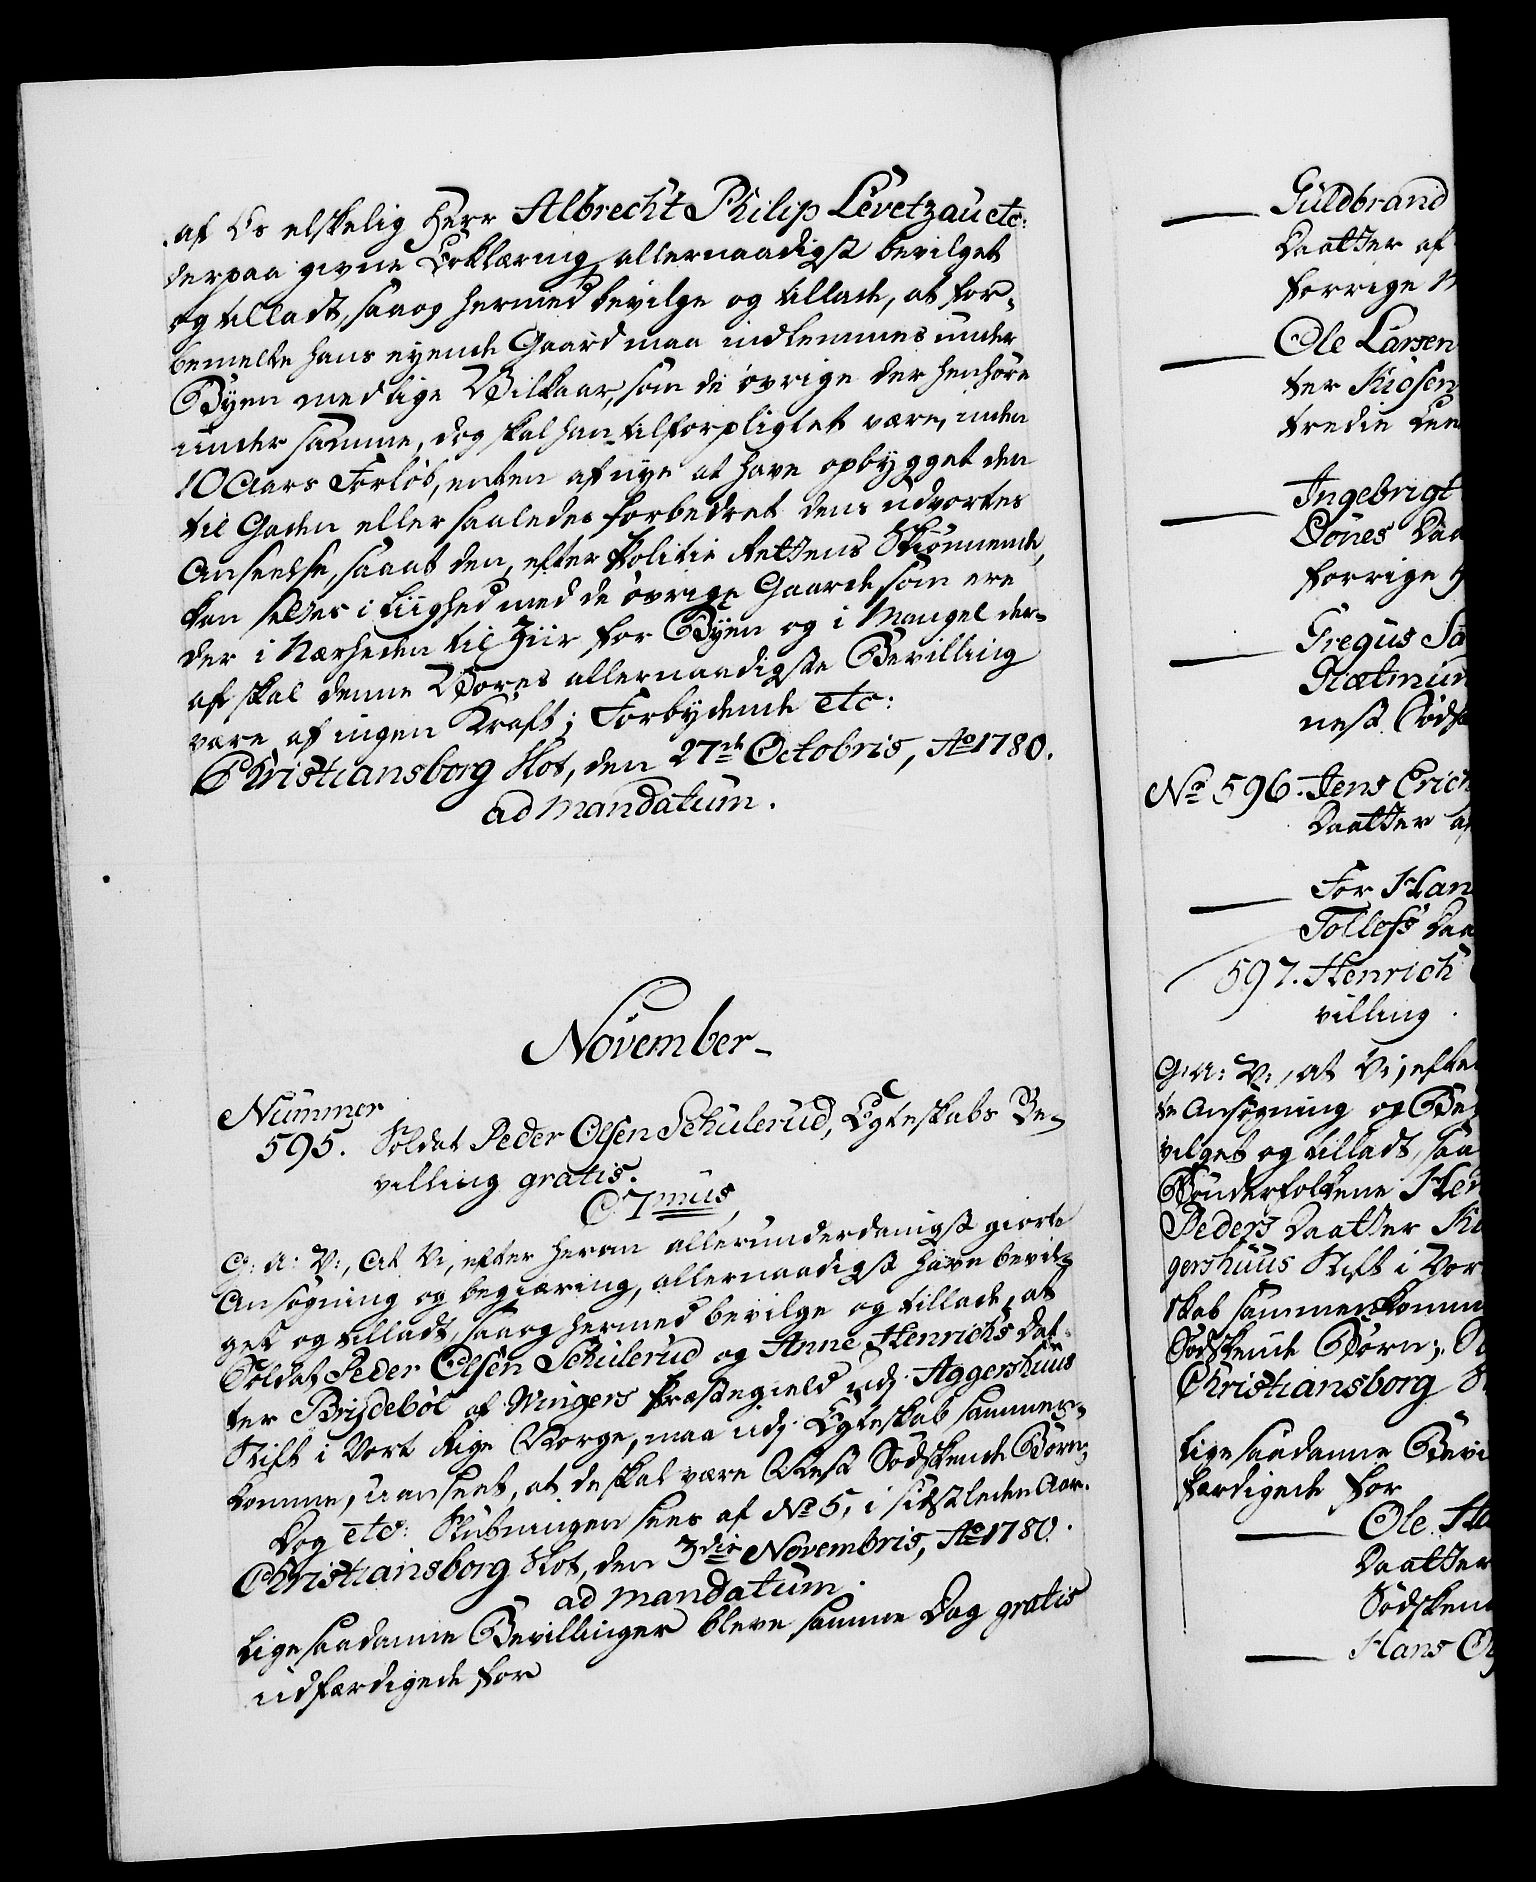 af Os elskelig Herr Albrecht Philip Levetzau etc:
derpaa givne Erklæring allernaadigst bevilget
og tilladt, saa og hermed bevilge og tillade, at for-
bemelte hans eyende Gaard maa indlemmes under
Byen med lige Vilkaar, som de øvrige der henhøre
under samme, dog skal han tilforpligtet være, inden
10 Aars Forløb, enten af nye at have opbygget den
til Gaden eller saaledes forbedret dens udvortes
Anseelse, saa at den, efter Politie Rettens Skiønnende,
kan sættes i Liighed med de øvrige Gaarde som ere
der i Nærheden til Ziir for Byen og i Mangel der-
af skal denne Vores allernaadigste Bevilling
være af ingen Kraft; Forbydende etc:
Christiansborg Slot, den 27de Octobris, Ao 1780.
ad mandatum.
November
Nummer
595. Soldat Peder Olsen Schulerud, Egteskabs Be-
villing gratis.
C7mus,
G: A: V:, At Vi, efter herom allerunderdanigst giorte
Ansøgning og begiæring, allernaadigst have bevil-
get og tilladt, saa og hermed bevilge og tillade, at
Soldat Peder Olsen Schulerud og Anne Henrichs Dat-
ter Brydebøl af Wingers Præstegield udj Aggershuus
Stift i Vort Rige Norge, maa udj Egteskab sammen-
komme, uanseet, at de skal være Næst Sødskende Børn;
Dog etc: Slutningen sees af No 5, i sidstleden Aar.
Christiansborg Slot, den 3die Novembris, Ao 1780.
ad mandatum.
Lige saadanne Bevillinger bleve samme Dag gratis
udfærdigede for
Guldbrand
Daatter af
forrige N
Ole Larsen
ter Kiøsen
tredie Lee
Ingebrigt
Dønes Daa
forrige
Gregus Sa
Rætmun
nest Søds
No 596. Jens Erich
Daatter af
For Han
Tollefs Daa
597. Henrich
villing.
G: A: V:, At Vi, efte
te Ansøgning og Be
vilget og tilladt, saa
Bønderfolkene Hen
Peders Daatter Ki
gershuus Stift i Vor
skab sammenkomm
Sødskende Børn;
Christiansborg
Lige saadanne Bevi
færdigede for
Ole He
Daatter
Sødsken
Hans